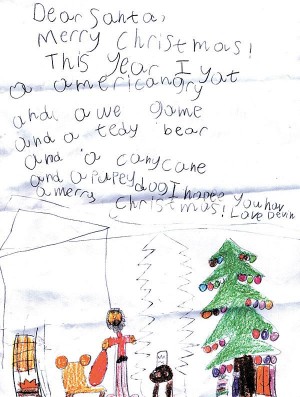 Dear Santa,
Merry Christmas!
This Year I yat
a americangry
and a we game
and a tedy bear
and a canycane
and a pupey dog I hope You hav
a merry Christmas! Love Devin